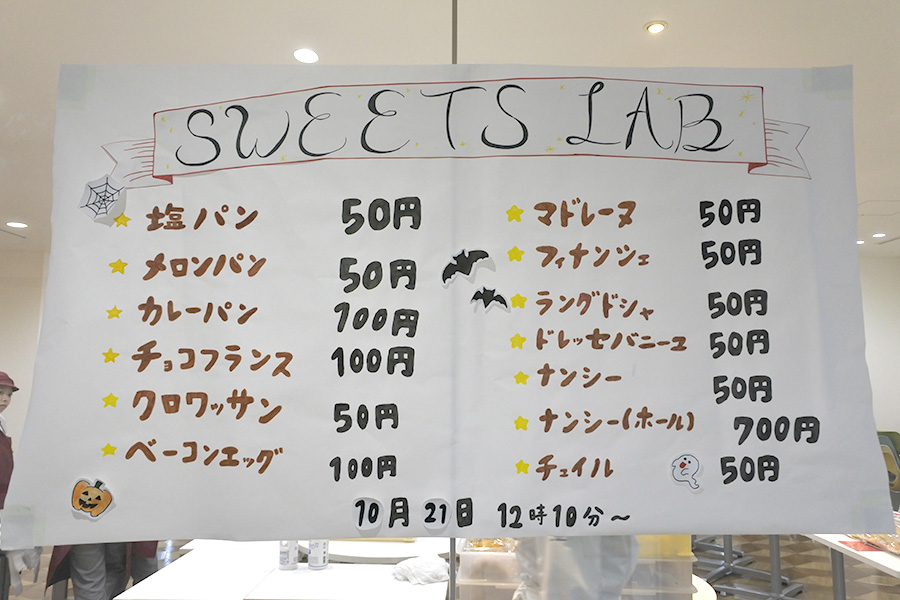 SWEETS LAB
塩パン 50円
メロンパン 50円
カレーパン 100円
チョコフランス 100円
クロワッサン 50円
ベーコンエッグ 100円
マドレーヌ 50円
フィナンシェ 50円
ラングドシャ 50円
ドレッセバニーユ 50円
ナンシー 50円
ナンシー(ホール) 700円
チェイル 50円
10月21日 12時10分～